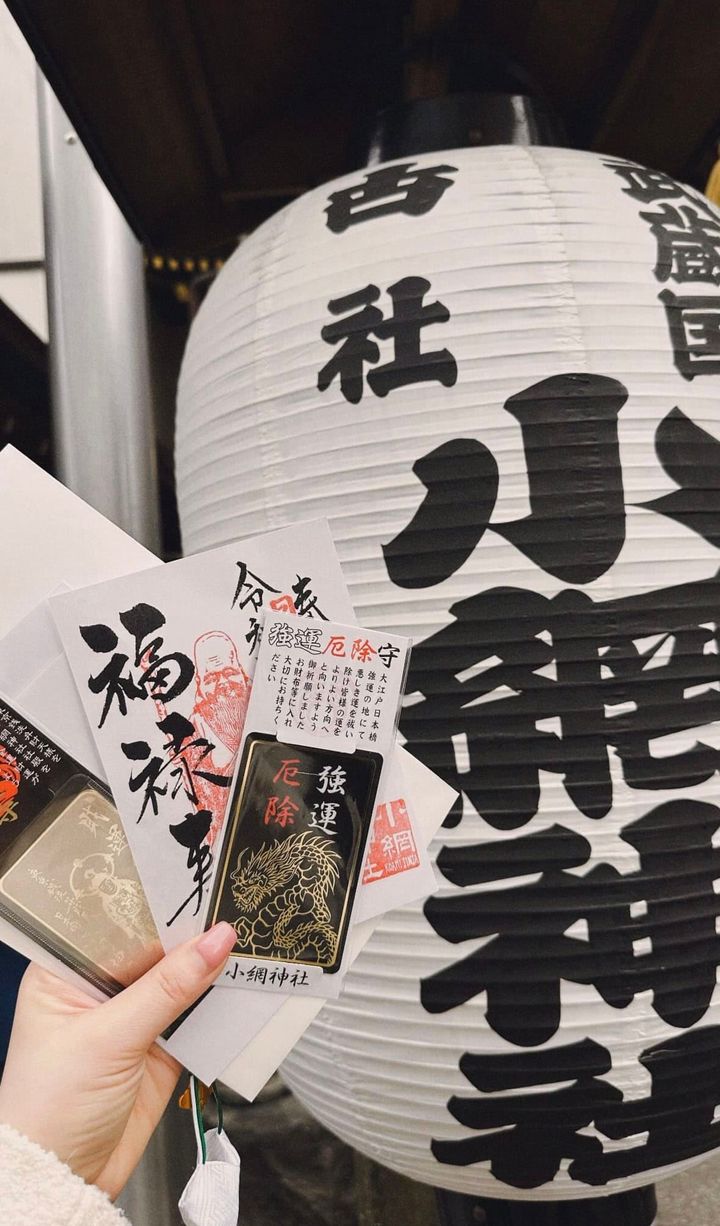 武蔵国
古社
小網神社
令和
福禄寿
強運厄除守
大江戸日本橋
強運の地にて
悪しき運を祓い
除け皆様の運を
よりよい方向へ
と向いますよう
御祈願しました
お財布等に入れ
大切にお持ちく
ださい
強運
厄除
小網神社
小網